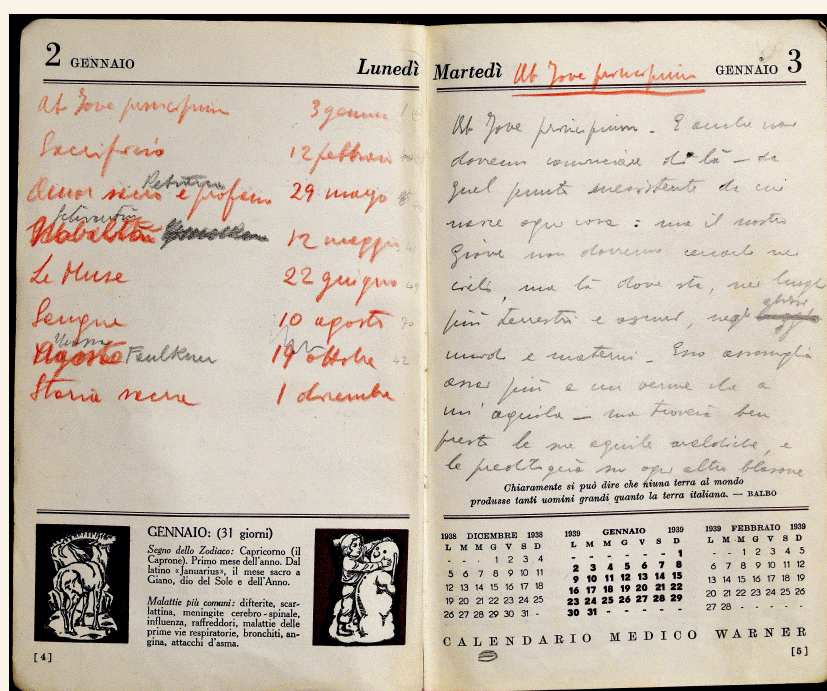 2 GENNAIO Lunedì
Ab Jove principium 3 gennaio 1
Sacrificio 12 febbraio
Amor sacro e profano 29 marzo
12 maggio
Le Muse 22 giugno 49
Sangue 10 agosto 70
Faulkner 19 ottobre 42
Storia sacra 1 dicembre
GENNAIO: (31 giorni)
Segno dello Zodiaco: Capricorno (il
Caprone). Primo mese dell'anno. Dal
latino «Januarius», il mese sacro a
Giano, dio del Sole e dell'Anno.
Malattie più comuni: difterite, scar-
lattina, meningite cerebro-spinale,
influenza, raffreddori, malattie delle
prime vie respiratorie, bronchiti, an-
gina, attacchi d'asma.
[4]
Martedì Ab Jove principium GENNAIO 3
Ab Jove principium - E anche noi
dovremo cominciare di là - da
quel punto inesistente da cui
nasce ogni cosa : ma il nostro
Giove non dovremo cercarlo nei
cieli, ma là dove sta, nei luoghi
più terrestri e oscuri, negli abissi
umidi e materni - Esso assomiglia
assai più a un verme che a
un'aquila - ma troverà ben
presto le sue aquile araldiche, e
le su ogni altro blasone
Chiaramente si può dire che niuna terra al mondo
produsse tanti uomini grandi quanto la terra italiana. — BALBO
1938 DICEMBRE 1938
L M M G V S D
- - - 1 2 3 4
5 6 7 8 9 10 11
12 13 14 15 16 17 18
19 20 21 22 23 24 25
26 27 28 29 30 31 -
1939 GENNAIO 1939
L M M G V S D
- - - - - - 1
2 3 4 5 6 7 8
9 10 11 12 13 14 15
16 17 18 19 20 21 22
23 24 25 26 27 28 29
30 31 - - - - -
1939 FEBBRAIO 1939
L M M G V S D
- - 1 2 3 4 5
6 7 8 9 10 11 12
13 14 15 16 17 18 19
20 21 22 23 24 25 26
27 28 - - - - -
CALENDARIO MEDICO WARNER
[5]